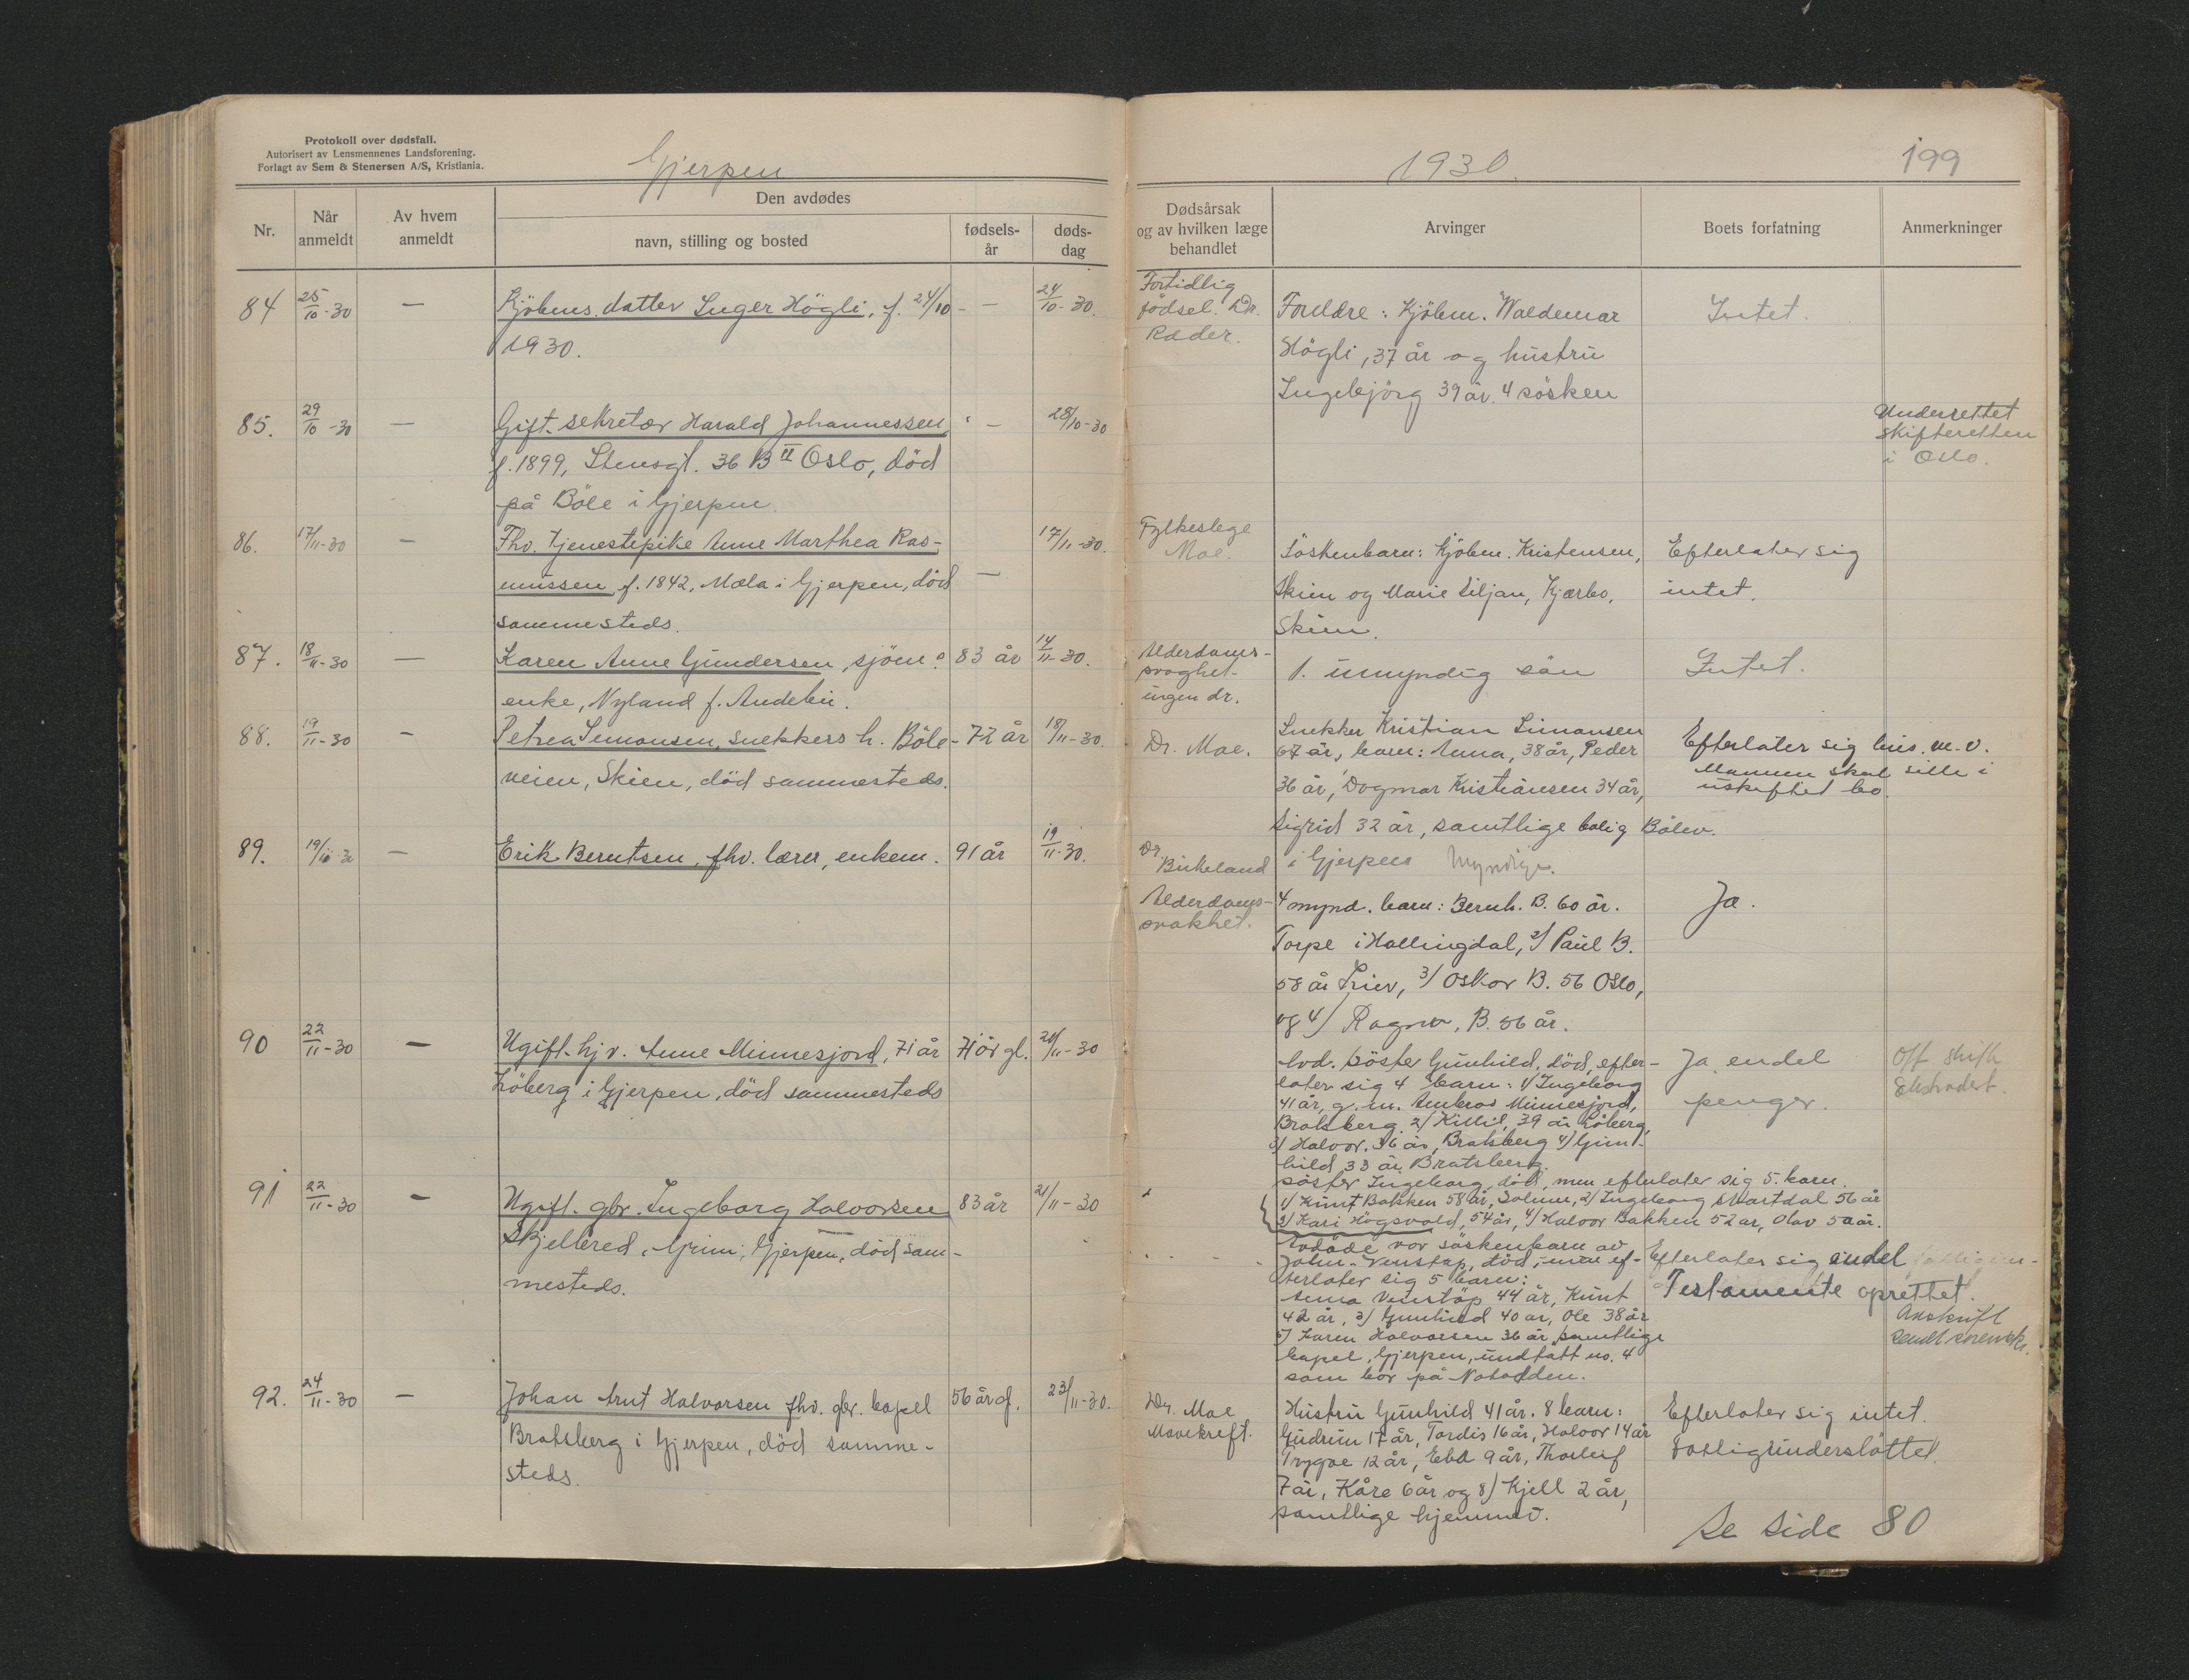 Protokoll over dødsfall.
Autorisert av Lensmennenes Landsforening.
Forlagt av Sem & Stenersen A/S, Kristiania.
Gjerpen
Nr.
Når anmeldt
Av hvem anmeldt
Den avdødes
navn, stilling og bosted
fødsels-år
døds-dag
84 25/10-30 — Kjöbms. datter Inger Högli, f. 24/10 - — 24/10-30.
1930.
85. 29/10-30 — Gift. sekretær Harald Johannessen — 28/10-30
f. 1899, Stensgt. 36 B II Oslo, död
på Böle i Gjerpen.
86. 17/11-30 — Fhv. tjenestepike Anne Marthea Ras- 17/11-30.
mussen f. 1842, Mæla i Gjerpen, död —
sammesteds.
87. 18/11-30 — Karen Anne Gundersen, sjöm. 83 år 14/11-30.
enke, Nyland f. Andebu.
88. 19/11-30 — Petrea Simonsen, snekkers h. Böle- 72 år 18/11-30.
veien, Skien, död sammesteds.
89. 19/11-30 — Erik Berntsen, fhv. lærer, enkem. 91 år 19/11-30.
90 22/11-30 — Ugift. hj v. Anne Minnesjord, 71 år 71 år gl. 20/11-30
Löberg i Gjerpen, död sammesteds
91 22/11-30 — Ugift. gbr. Ingeborg Halvorsen 83 år 21/11-30
Skjellered, Grini, Gjerpen, död sam-
mesteds.
92. 24/11-30 — Johan Arnt Halvorsen fhv. gbr. 56 år gl. 23/11-30.
Bratsberg i Gjerpen, död samme-
steds.
1930.
199
Dødsårsak
og av hvilken læge
behandlet
Arvinger
Boets forfatning
Anmerkninger
Fortidlig
födsel. Dr.
Ræder.
Foreldre: Kjöbm. Waldemar
Högli, 37 år og hustru
Ingebjörg 39 år. 4 sösken
Intet.
Underrettet
skifteretten
i Oslo.
Fylkeslege
Moe.
Söskenbarn: Kjöbm. Kristensen,
Skien og Marie Siljan, Kjærbo,
Skien.
Efterlater sig
intet.
Alderdoms-
svaghet-
ingen dr.
1. umyndig sön
Intet.
Dr. Moe.
Snekker Kristian Simonsen
67 år, barn: Anna, 38 år, Peder
36 år, Dagmar Kristiansen 34 år,
Sigrid 32 år, samtlige bolig Bölev.
i Gjerpen Myndige.
Efterlater sig hus. m.v.
Mannen skal sitte i
uskiftet bo.
Dr.
Birkeland
Alderdoms-
svakhet.
4 mynd. barn: Bernh. B. 60 år.
Torpe i Hallingdal, 2/ Paul B.
58 år, 3/ Oskar B. 56 Oslo,
og 4/ B. 56 år.
Ja.
Avd. söster Gunhild, död, efter-
later sig 4 barn: 1/ Ingeborg
41 år, g. m. Ambros Minnesjord,
Bratsberg. 2/ Killid, 39 år Löberg,
3/ Halvor. 36 år, Bratsberg 4/ Gun-
hild 33 år Bratsberg.
Ja, endel
penger.
Off. skifte
Ekstradert.
söster Ingeborg, död, men efterlater sig 5. barn.
1/ Knut Bakken 58 år, Solum, 2/ Ingeborg Svartdal 56 år
3/ Kari Högsvold, 54 år, 4/ Halvor Bakken 52 år, Olav 50 år.
Avdöde var söskenbarn av
John Venstöp, död, men ef-
terlater sig 5 barn:
Anna Venstöp 44 år, Knut
42 år, 3/ Gunhild 40 år, Ole 38 år
5/ Karen Halvorsen 36 år samtlige
kapel, Gjerpen, undtatt no. 4
som bor på Notodden.
Efterlater sig endel
Testamente oprettet.
Avskrift
sendt sorenskr.
Dr. Moe
Mavekreft.
Hustru Gunhild 41 år. 8 barn:
Gudrun 17 år, Tordis 16 år, Halvor 14 år
Trygve 12 år, Ebba 9 år, Thorleif
7 år, Kåre 6 år og 8/ Kjell 2 år,
samtlige hjemmev.
Efterlater sig intet.
Fattigunderstöttet.
Se side 80